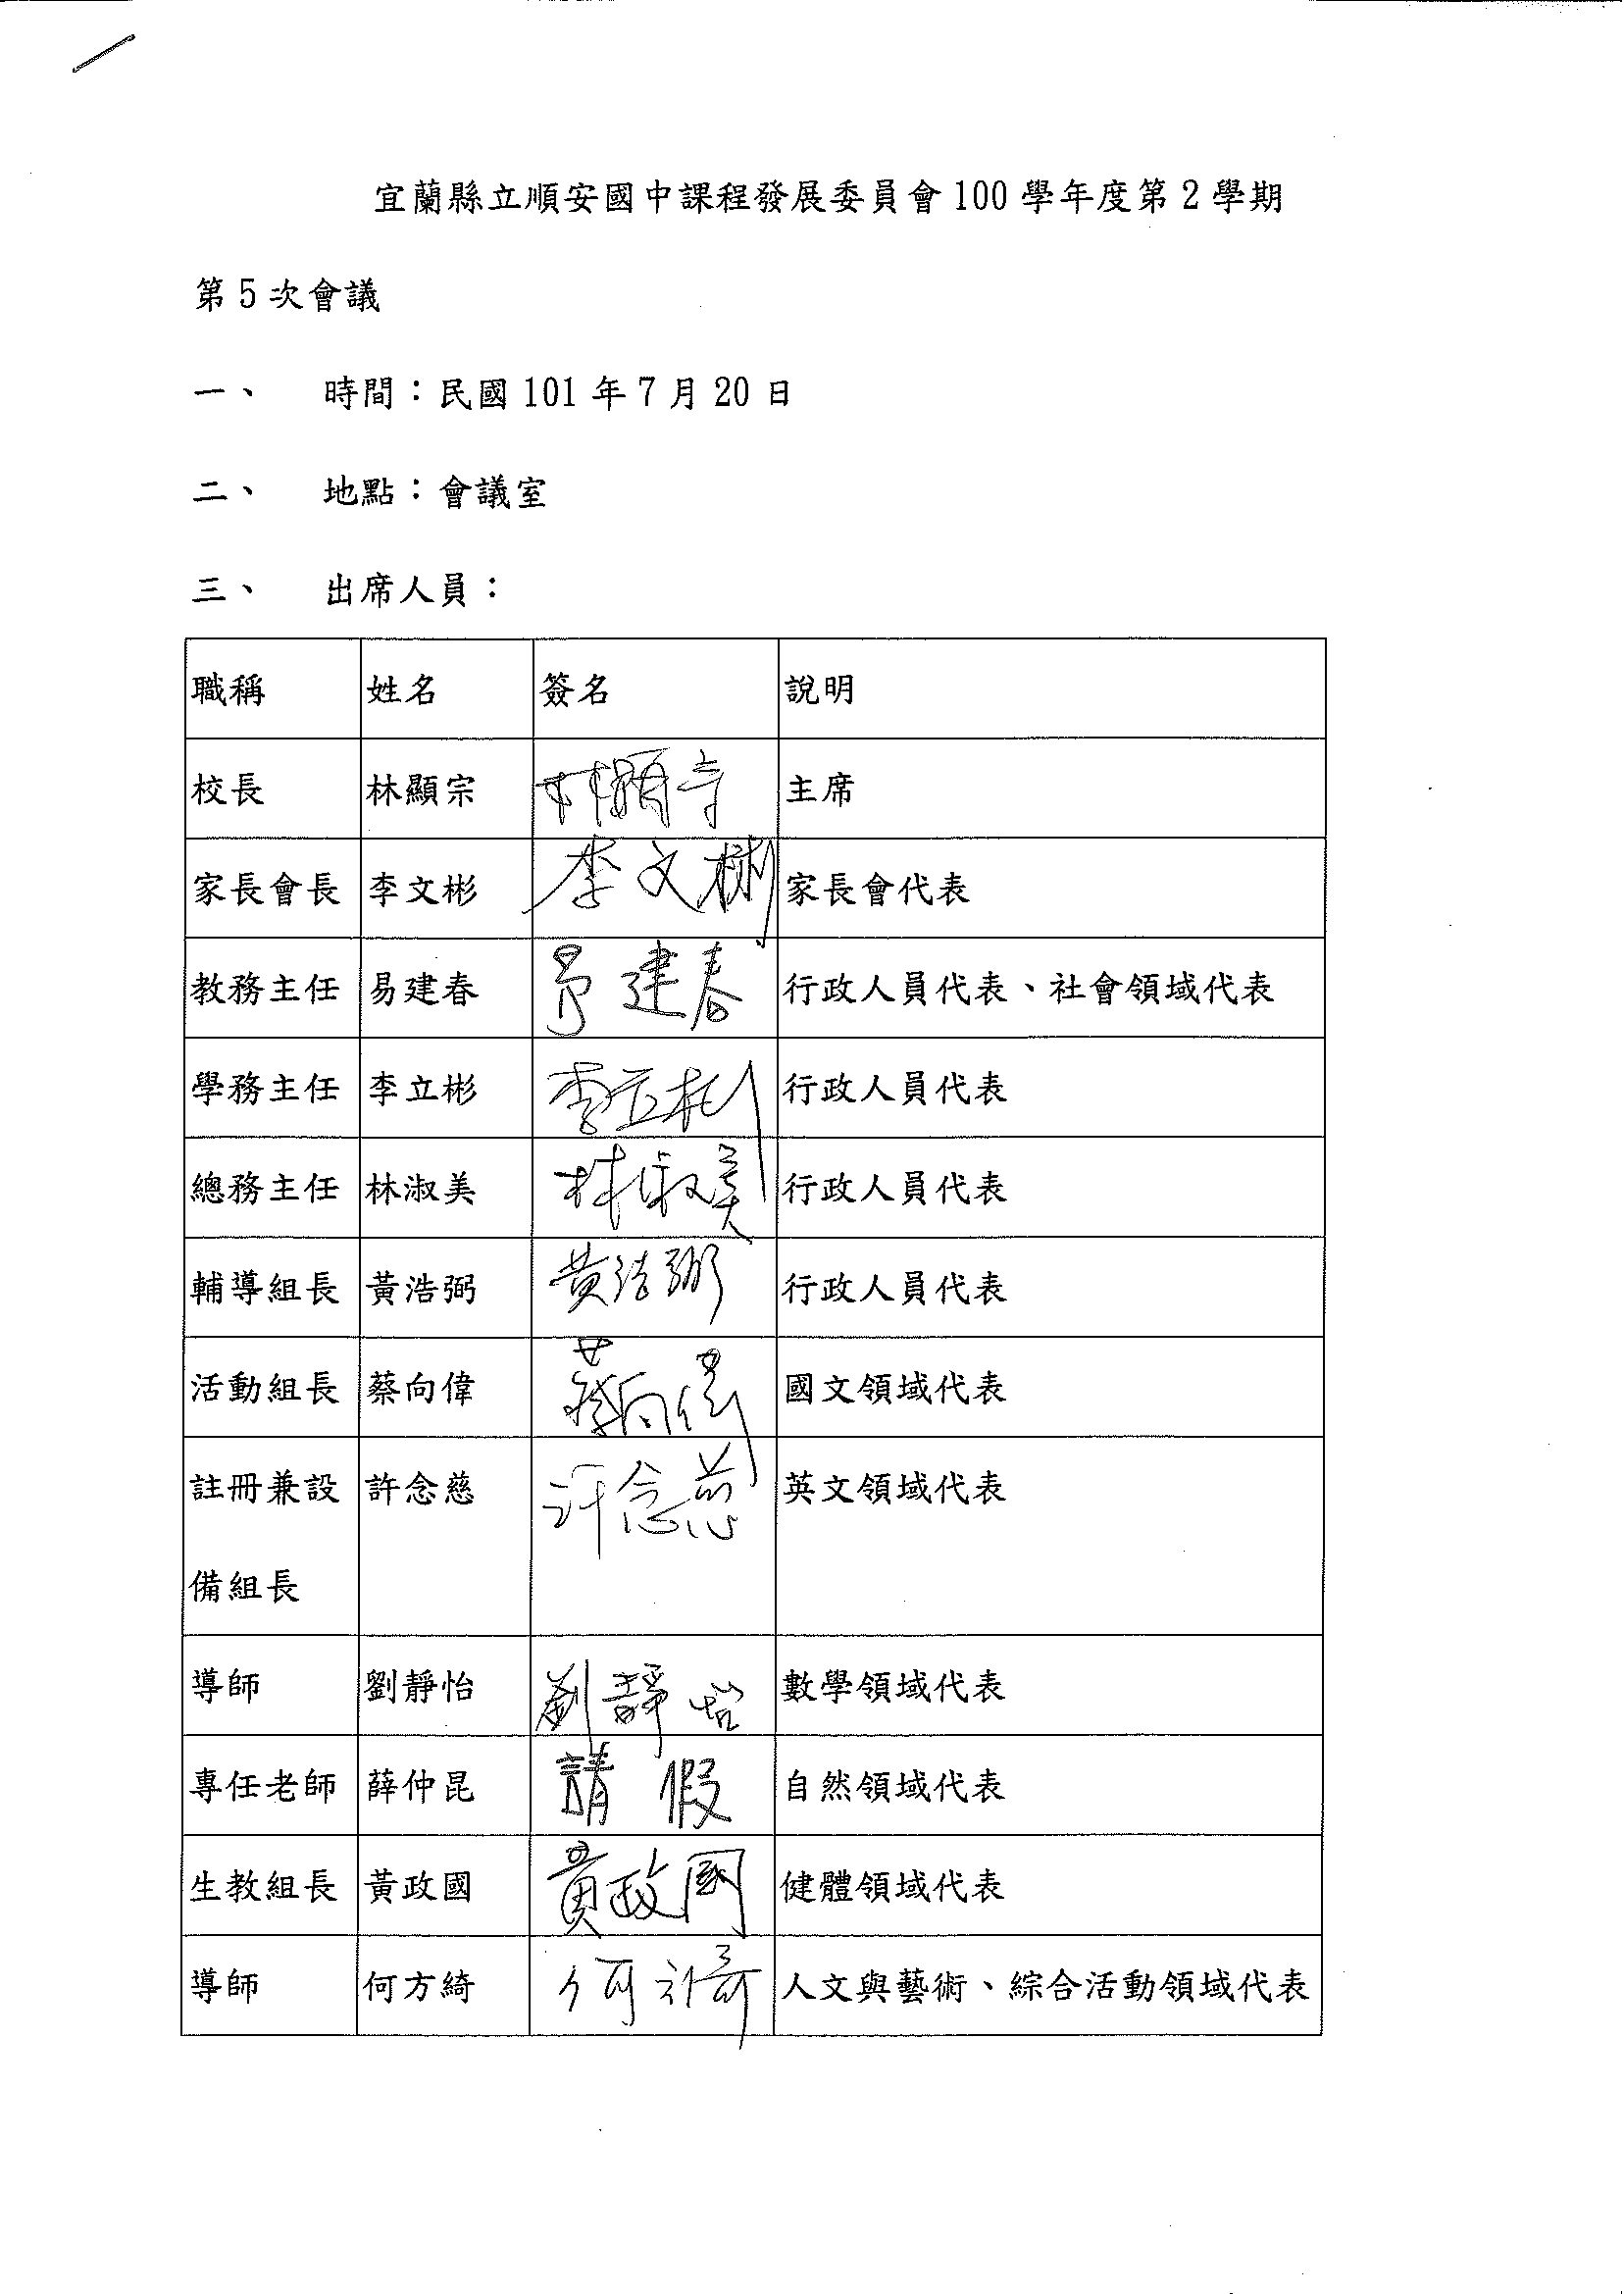 宜蘭縣立順安國中課程發展委員會 100 學年度第 2 學期
第 5 次會議
一、 時間：民國 101 年 7 月 20 日
二、 地點：會議室
三、 出席人員：
職稱 姓名 簽名 說明
校長 林顯宗 林顯宗 主席
家長會長 李文彬 李文彬 家長會代表
教務主任 易建春 易建春 行政人員代表、社會領域代表
學務主任 李立彬 李立彬 行政人員代表
總務主任 林淑美 林淑美 行政人員代表
輔導組長 黃浩弼 黃浩弼 行政人員代表
活動組長 蔡向偉 蔡向偉 國文領域代表
註冊兼設 許念慈 許念慈 英文領域代表
備組長
導師 劉靜怡 劉靜怡 數學領域代表
專任老師 薛仲昆 請假 自然領域代表
生教組長 黃政國 黃政國 健體領域代表
導師 何方綺 何方綺 人文與藝術、綜合活動領域代表